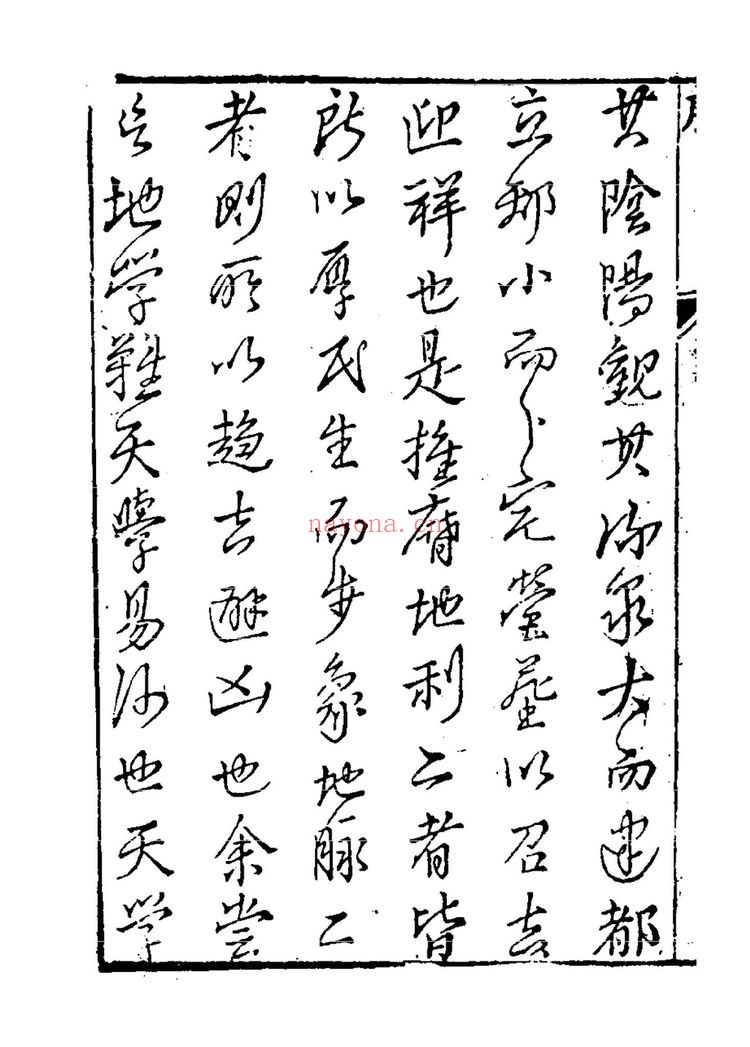 其陰陽觀其流泉大而建都
立邦小而卜宅營塟以召吉
迎祥也是地利二者皆
所以厚民生而步象地脉二
者則所以趨吉避凶也余嘗
言地学難天學易何也天学
nayona.cn